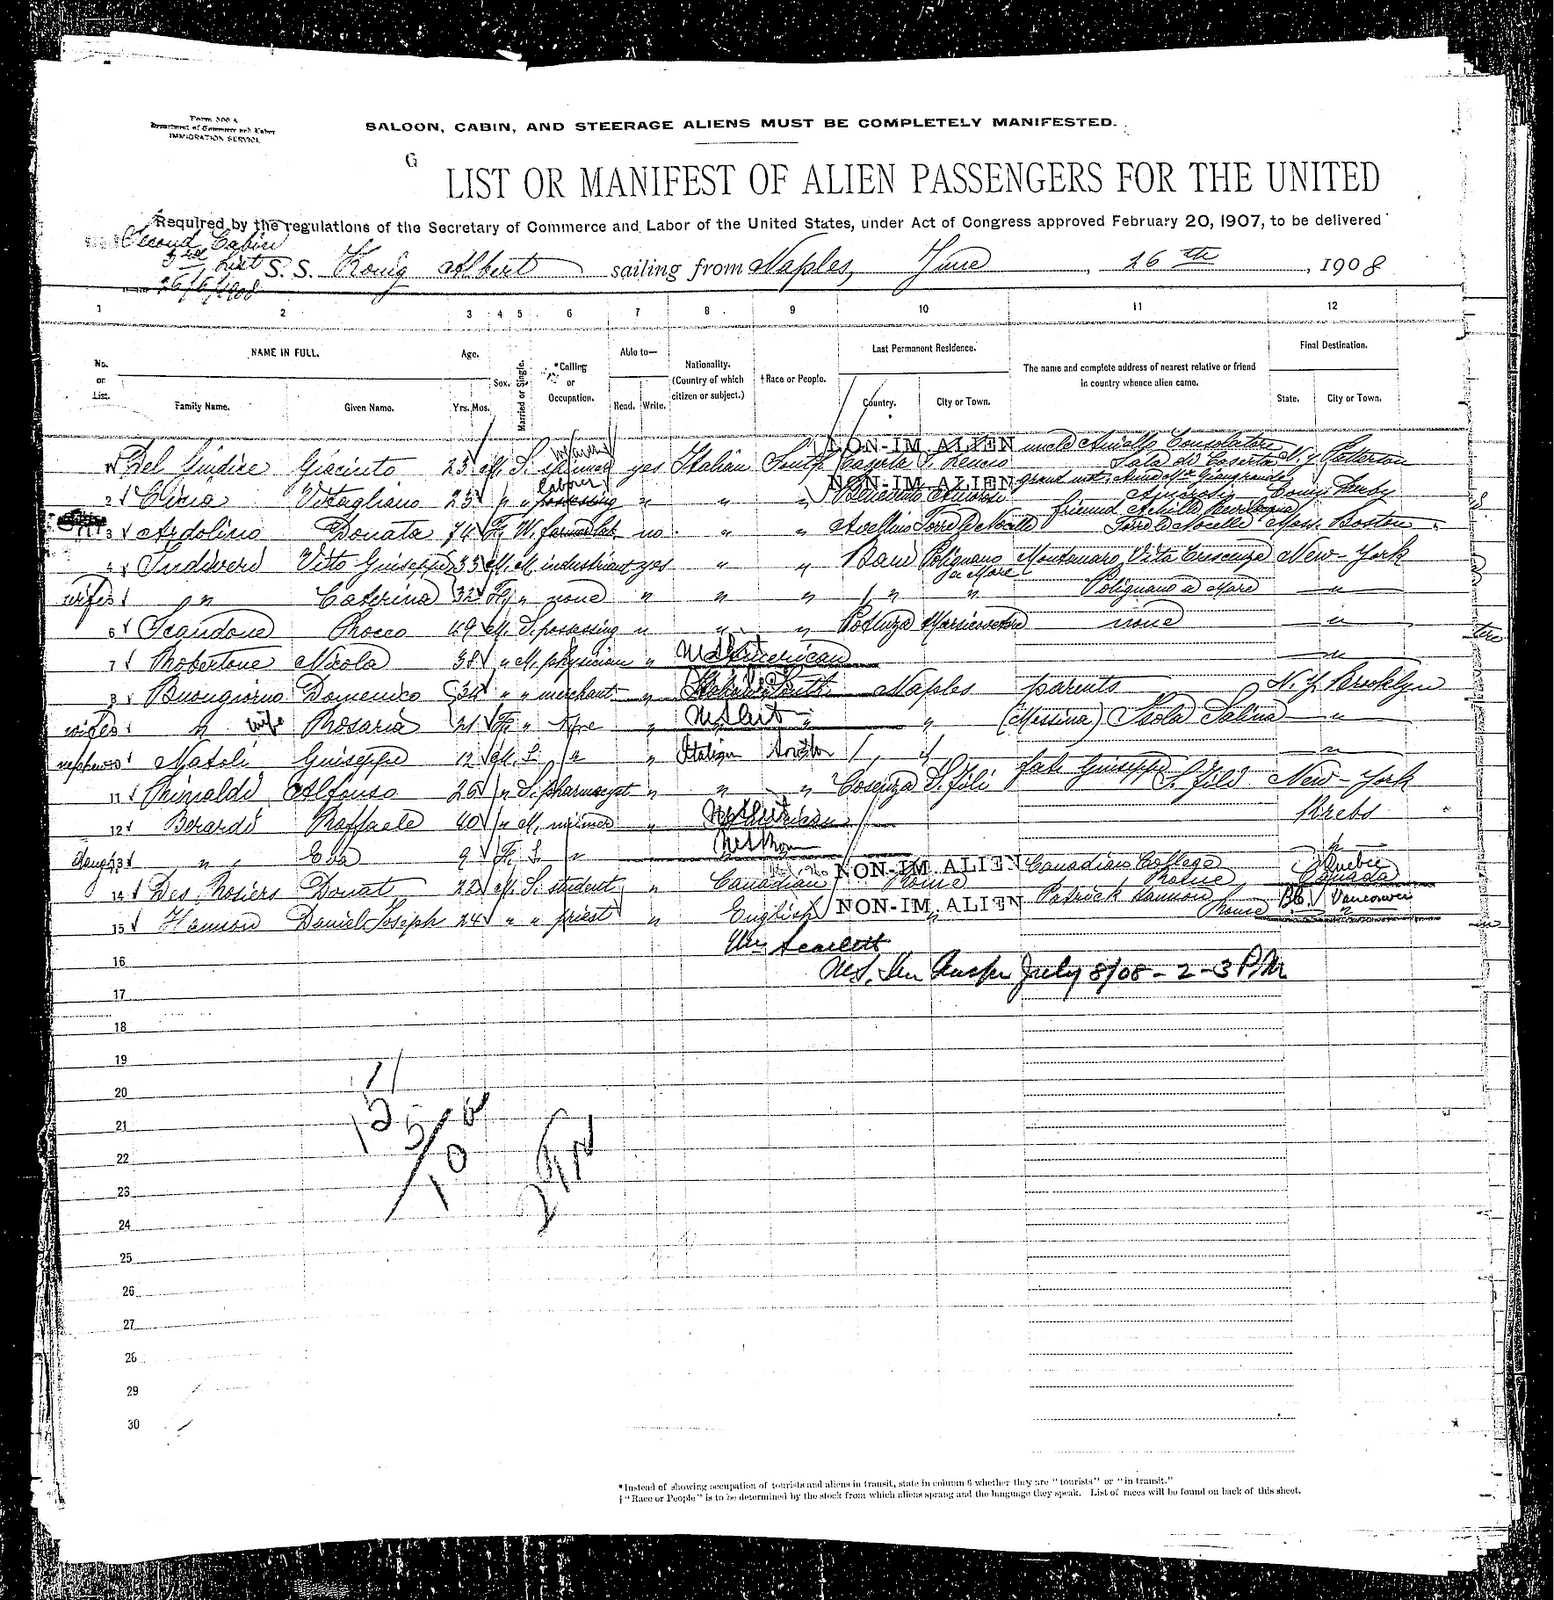 Form 500 A
Department of Commerce and Labor
IMMIGRATION SERVICE
SALOON, CABIN, AND STEERAGE ALIENS MUST BE COMPLETELY MANIFESTED.
G
LIST OR MANIFEST OF ALIEN PASSENGERS FOR THE UNITED
Required by the regulations of the Secretary of Commerce and Labor of the United States, under Act of Congress approved February 20, 1907, to be delivered
Second Cabin
3rd List
26/6/1908
S. S. König Albert sailing from Naples, June, 26th, 1908
1 2 3 4 5 6 7 8 9 10 11 12
No. on List.
NAME IN FULL.
Family Name. Given Name.
Age.
Yrs. Mos.
Sex.
Married or Single.
*Calling or Occupation.
Able to—
Read. Write.
Nationality. (Country of which citizen or subject.)
†Race or People.
Last Permanent Residence.
Country. City or Town.
The name and complete address of nearest relative or friend in country whence alien came.
Final Destination.
State. City or Town.
NON-IM ALIEN
1 Del Giudice Giacinto 23 M. S. yes Italian South Caserta uncle Aniello Consolatore Sala di Caserta N.Y.
laborer
NON-IM ALIEN
2 Vitagliano 23 " " possessing " " " Conn. Derby
3 Ardolino Donata 74 F. W. no " " Avellino Torre le Nocelle friend Achille Torre le Nocelle Mass. Boston
4 Indiveri Vito Guiseppe 35 M. M. industriant yes " " Bari Polignano a Mare Montanaro Vita Crescenza New-York
wife 5 " Caterina 32 F. " none " " " " " Polignano a Mare "
6 Scandone Rocco 49 M. S. possessing " " " Potenza Marsicovetere none "
7 Robertone Nicola 38 " M. physician " American "
8 Buongiorno Domenico 34 " " merchant " Italian South Naples parents N.Y. Brooklyn
wife 9 " wife Rosaria 21 F. " " " " (Messina) Isola Salina "
nephew 10 Natoli Guiseppe 12 M. S. " " Italian South "
11 Rinaldi Alfonso 26 " S. " " " Cosenza S. Fili fath Guiseppe S. Fili New-York
12 Berardi Raffaele 40 " M. miner " American Krebs
daug. 13 " " Eva 9 F. S. " "
NON-IM ALIEN
14 Des Rosiers Donat 22 M. S. student " Canadian Rome Canadian College Rome Quebec Canada
NON-IM ALIEN
15 Hannon Daniel Joseph 24 " " priest " English " Patrick Hannon Rome B.C. Vancouver
Wm Scarlett
16
July 8/08 - 2-3 P.M
17
18
19
20
21
22
23
24
25
26
27
28
29
30
11
15
5/10
*Instead of showing occupation of tourists and aliens in transit, state in column 6 whether they are "tourists" or "in transit."
†"Race or People" is to be determined by the stock from which aliens sprang and the language they speak. List of races will be found on back of this sheet.